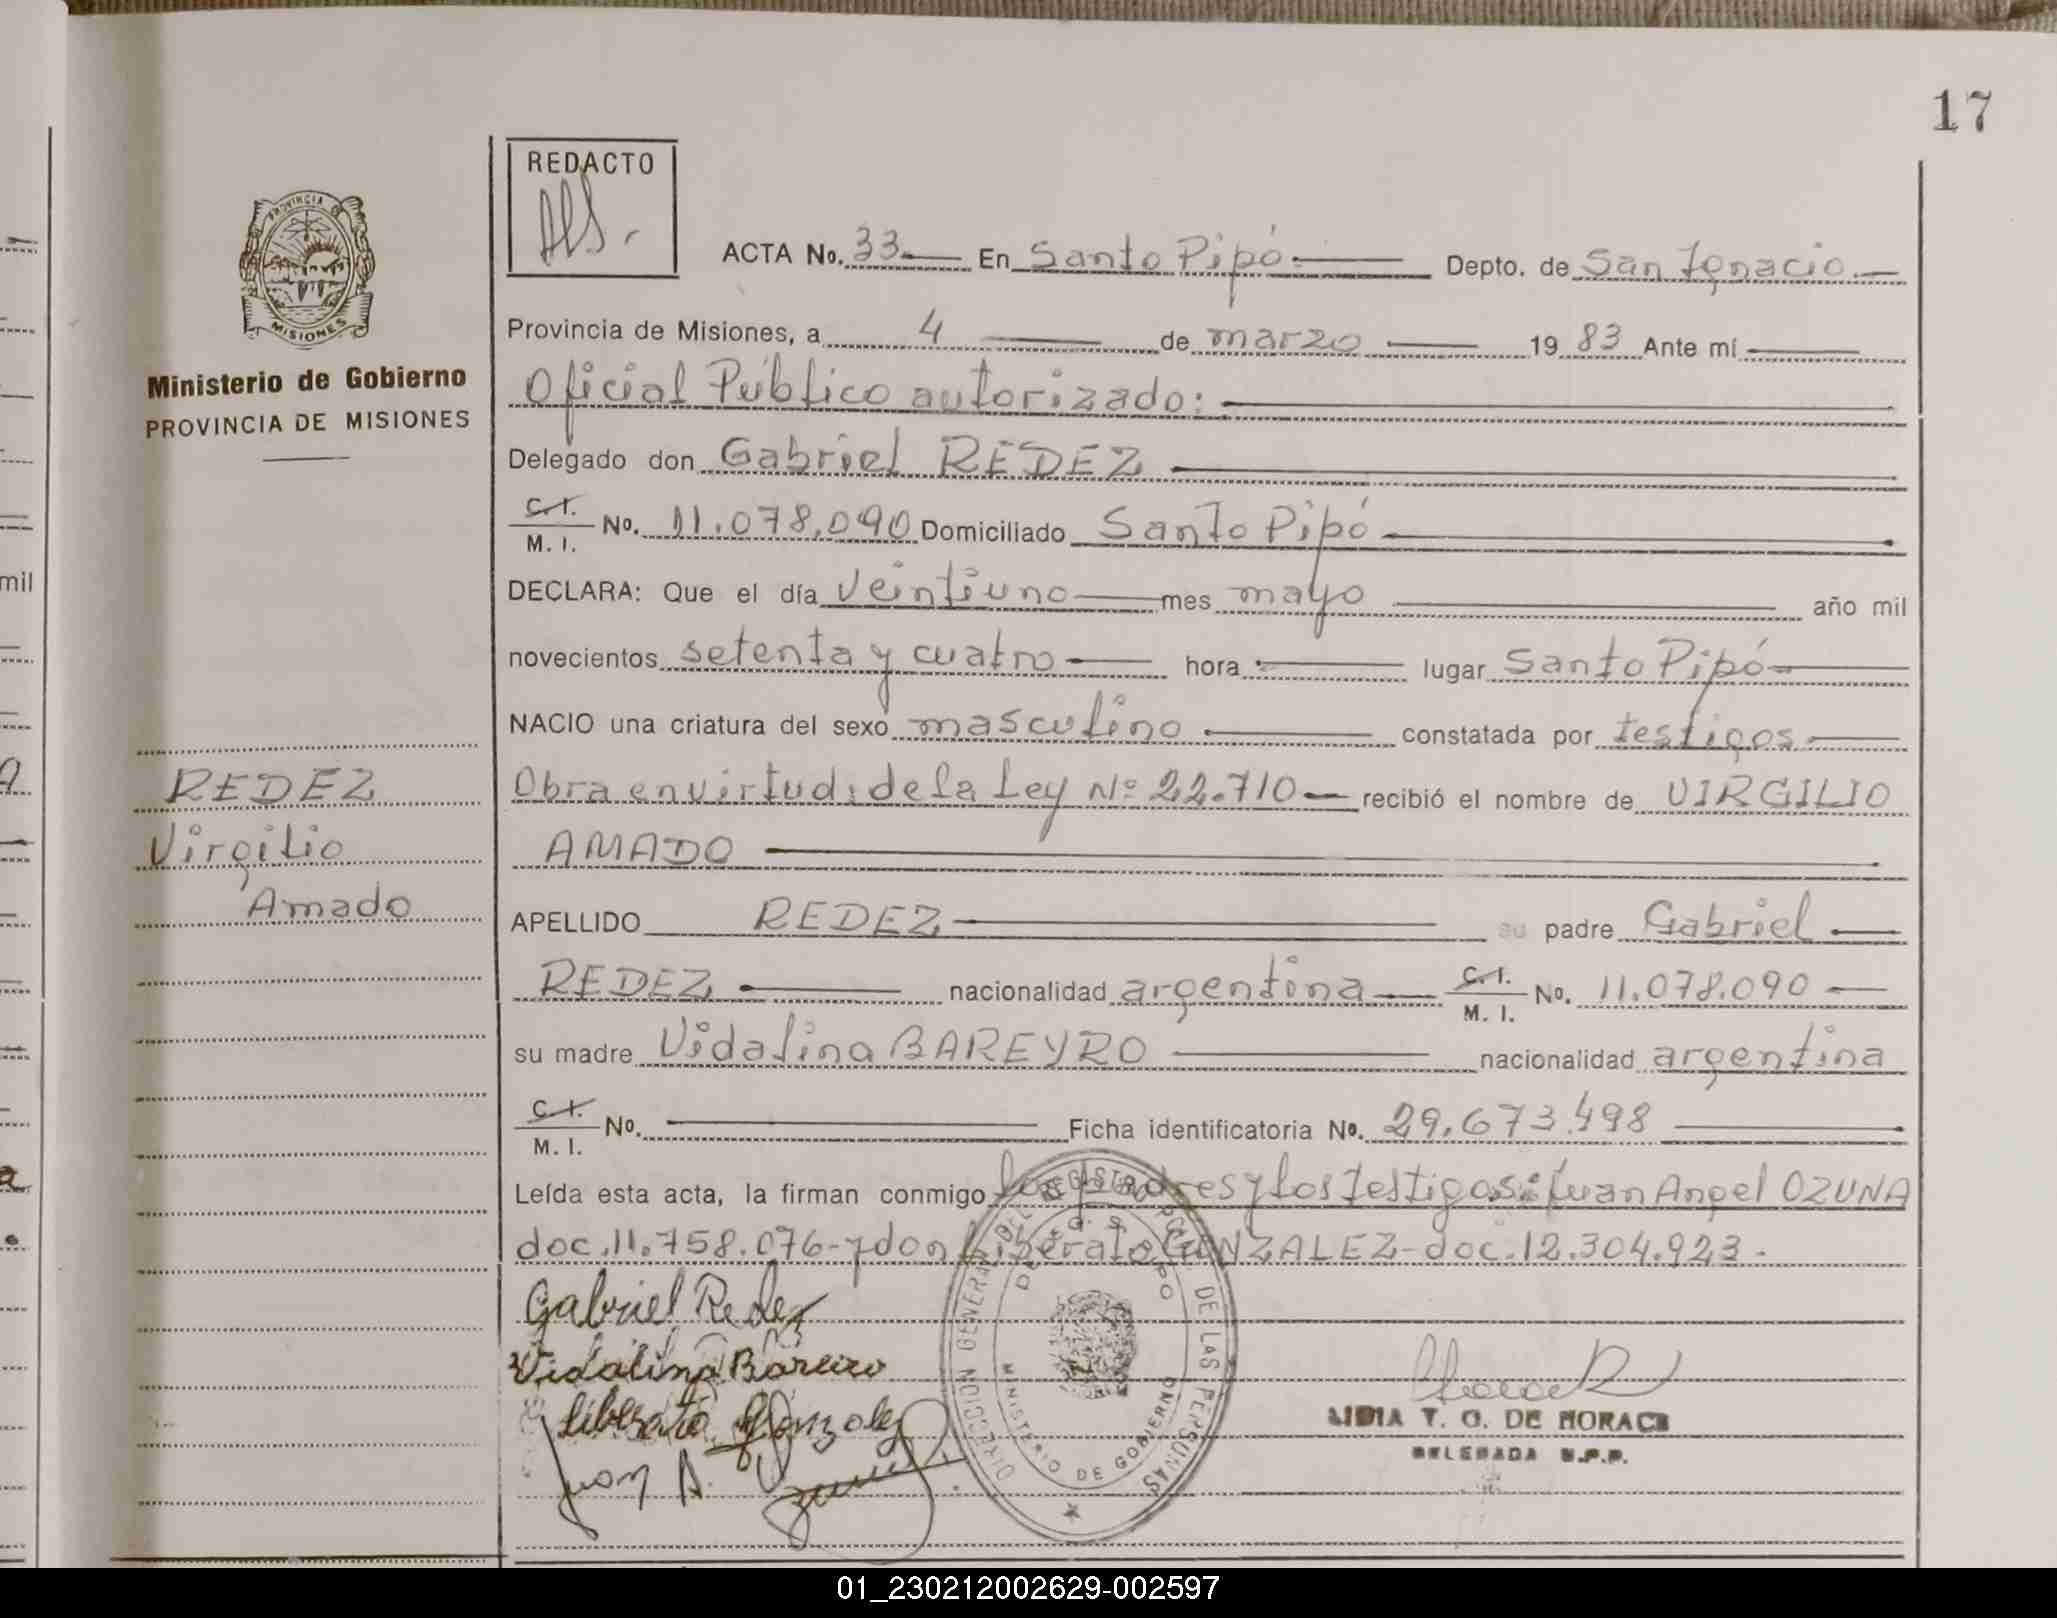 17
REDACTO
ACTA No. 33 En Santo Pipó Depto. de San Ignacio
PROVINCIA
MISIONES
Provincia de Misiones, a 4 de marzo 19 83 Ante mí
Ministerio de Gobierno
PROVINCIA DE MISIONES
Oficial Público autorizado:
Delegado don Gabriel REDEZ
C.I. M.I. No. 11.078.090 Domiciliado Santo Pipó
DECLARA: Que el día veintiuno mes mayo año mil
novecientos setenta y cuatro hora lugar Santo Pipó
NACIO una criatura del sexo masculino constatada por testigos
Obra en virtud: de la Ley Nº 22.710 recibió el nombre de VIRGILIO
AMADO
REDEZ
Virgilio
Amado
APELLIDO REDEZ su padre Gabriel
REDEZ nacionalidad argentina C.I. M.I. No. 11.078.090
su madre Vidalina BAREYRO nacionalidad argentina
C.I. M.I. No. Ficha identificatoria No. 29.673.498
Leída esta acta, la firman conmigo los padres y los testigos: Juan Angel OZUNA
doc. 11.758.076- y don Liberato GONZALEZ - doc. 12.304.923.
Gabriel Redez
Vidalina Bareiro
Liberato Gonzalez
Juan A.
DIRECCION GENERAL DEL REGISTRO PCIAL. DE LAS PERSONAS
MINISTERIO DE GOBIERNO
LIDIA T. G. DE MORACE
DELEGADA R.P.P.
mil
01_230212002629-002597